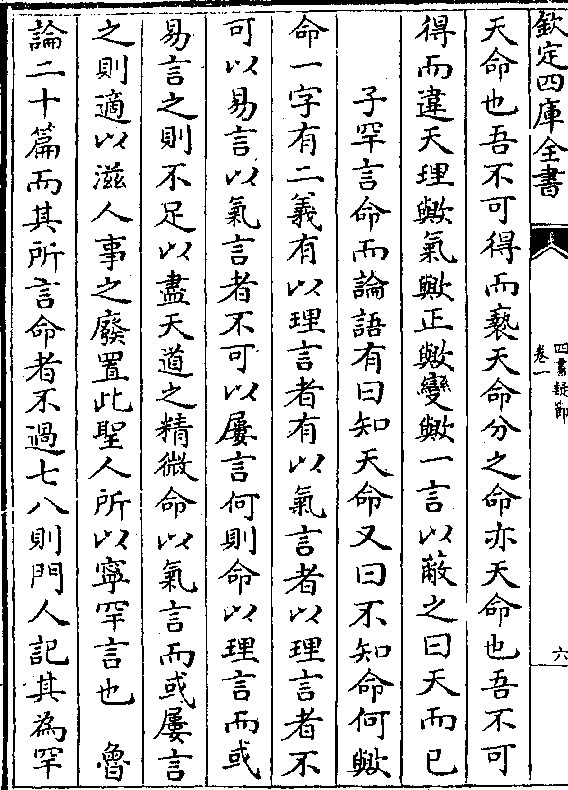 欽定四庫全書
四書疑節
卷一
六
天命也吾不可得而褻天命分之命亦天命也吾不可
得而違天理歟氣歟正歟變歟一言以蔽之曰天而已
子罕言命而論語有曰知天命又曰不知命何歟
命一字有二義有以理言者有以氣言者以理言者不
可以易言以氣言者不可以屢言何則命以理言而或
易言之則不足以盡天道之精微命以氣言而或屢言
之則適以滋人事之廢置此聖人所以寧罕言也 魯
論二十篇而其所言命者不過七八則門人記其為罕